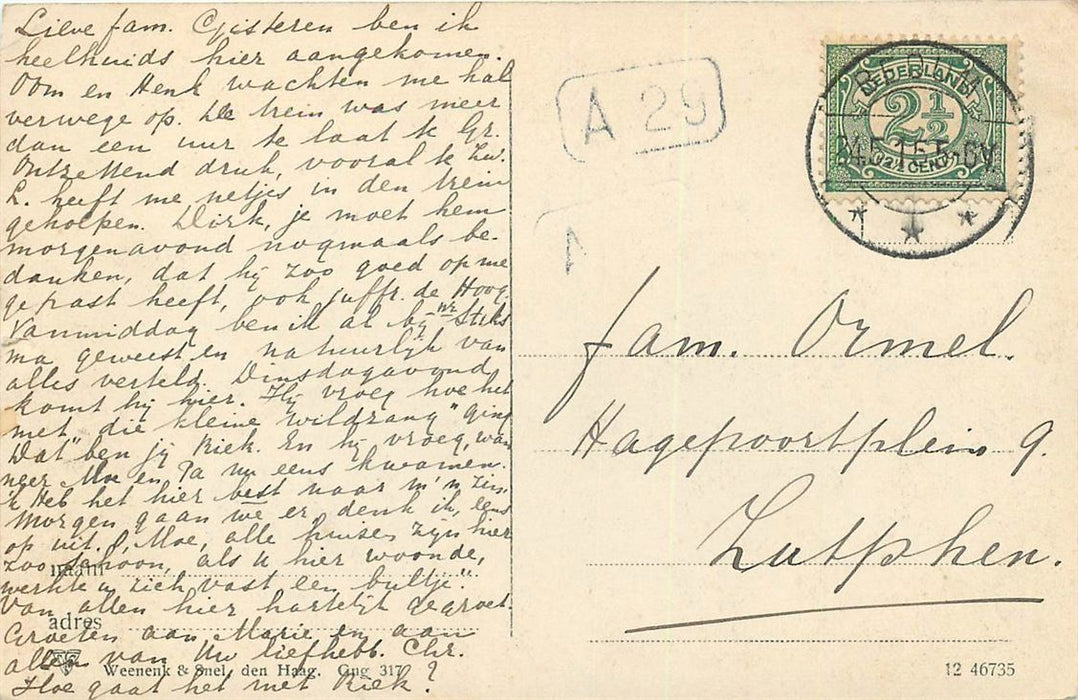 Lieve fam. Gisteren ben ik
heelhuids hier aangekomen.
Oom en Henk wachten me hal
verwege op. De trein was meer
dan een uur te laat te Gr.
Ontzettend druk, vooral te Zw.
L. heeft me netjes in den trein
geholpen. Dirk, je moet hem
morgenavond nogmaals be-
danken, dat hij zoo goed op me
gepast heeft, ook juffr. de Hoog.
Vanmiddag ben ik al bij
ma geweest en natuurlijk van
alles verteld. Dinsdagavond
komt hij hier. Hij vroeg hoe het
met „die kleine wildzang" ging
Dat ben jij Riek. En hij vroeg, wan
neer Moe en Pa nu eens kwamen.
'k Heb het hier best naar m'n zin.
Morgen gaan we er denk ik, eens
op uit. Moe, alle huizen zijn hier
zoo schoon, als u hier woonde,
werkte u zich vast een bultje".
Van allen hier hartelijk gegroet.
Groeten aan Marie en aan
allen van Uw liefhebb. Chr.
Hoe gaat het met Riek?
naam
adres
Weenenk & Snel, den Haag. Gng 317
A 29
A
NEDERLAND
2½
2½ CENT
5-6V
Fam. Ormel.
Hagepoortplein 9.
Zutphen.
12 46735